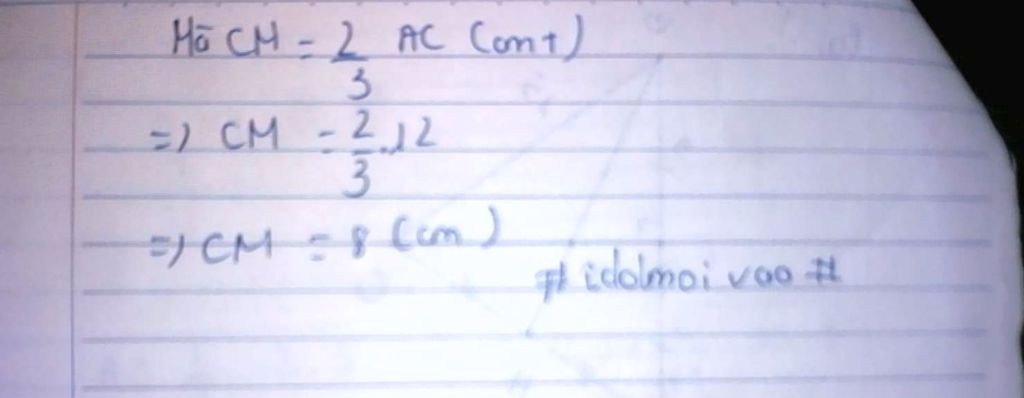 Mà CM = 2/3 AC (cmt)
=) CM = 2/3 . 12
=) CM = 8 (cm)
# idolmoi vao #